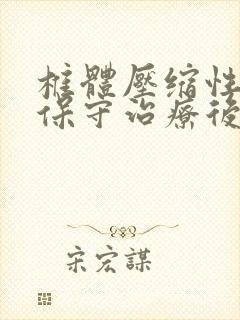 椎體壓缩性
保守治療後
宋宏謀